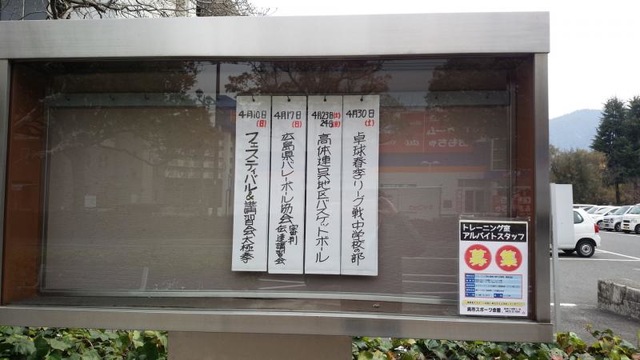 4月10日(日)
フェスティバル&講習会太極拳
4月17日(日)
広島県バレーボール協会審判伝達講習会
4月23日(土)
24日(日)
高体連呉地区バスケットボール
4月30日(土)
卓球春季リーグ戦中学校の部
トレーニング室
アルバイトスタッフ
募集
呉市スポーツ会館